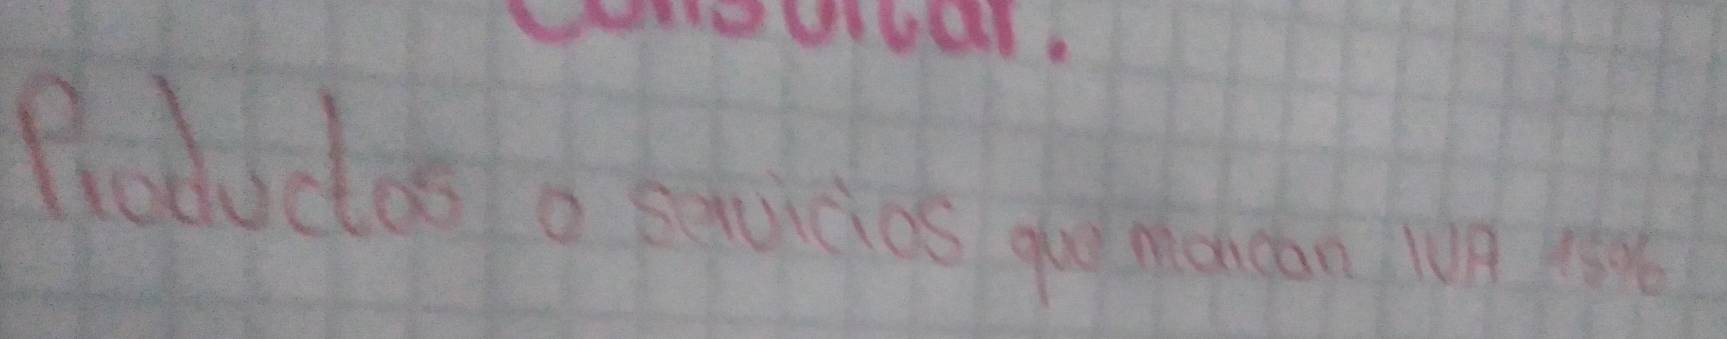 Consultar.
Productos o servicios que marcan IVA 15%